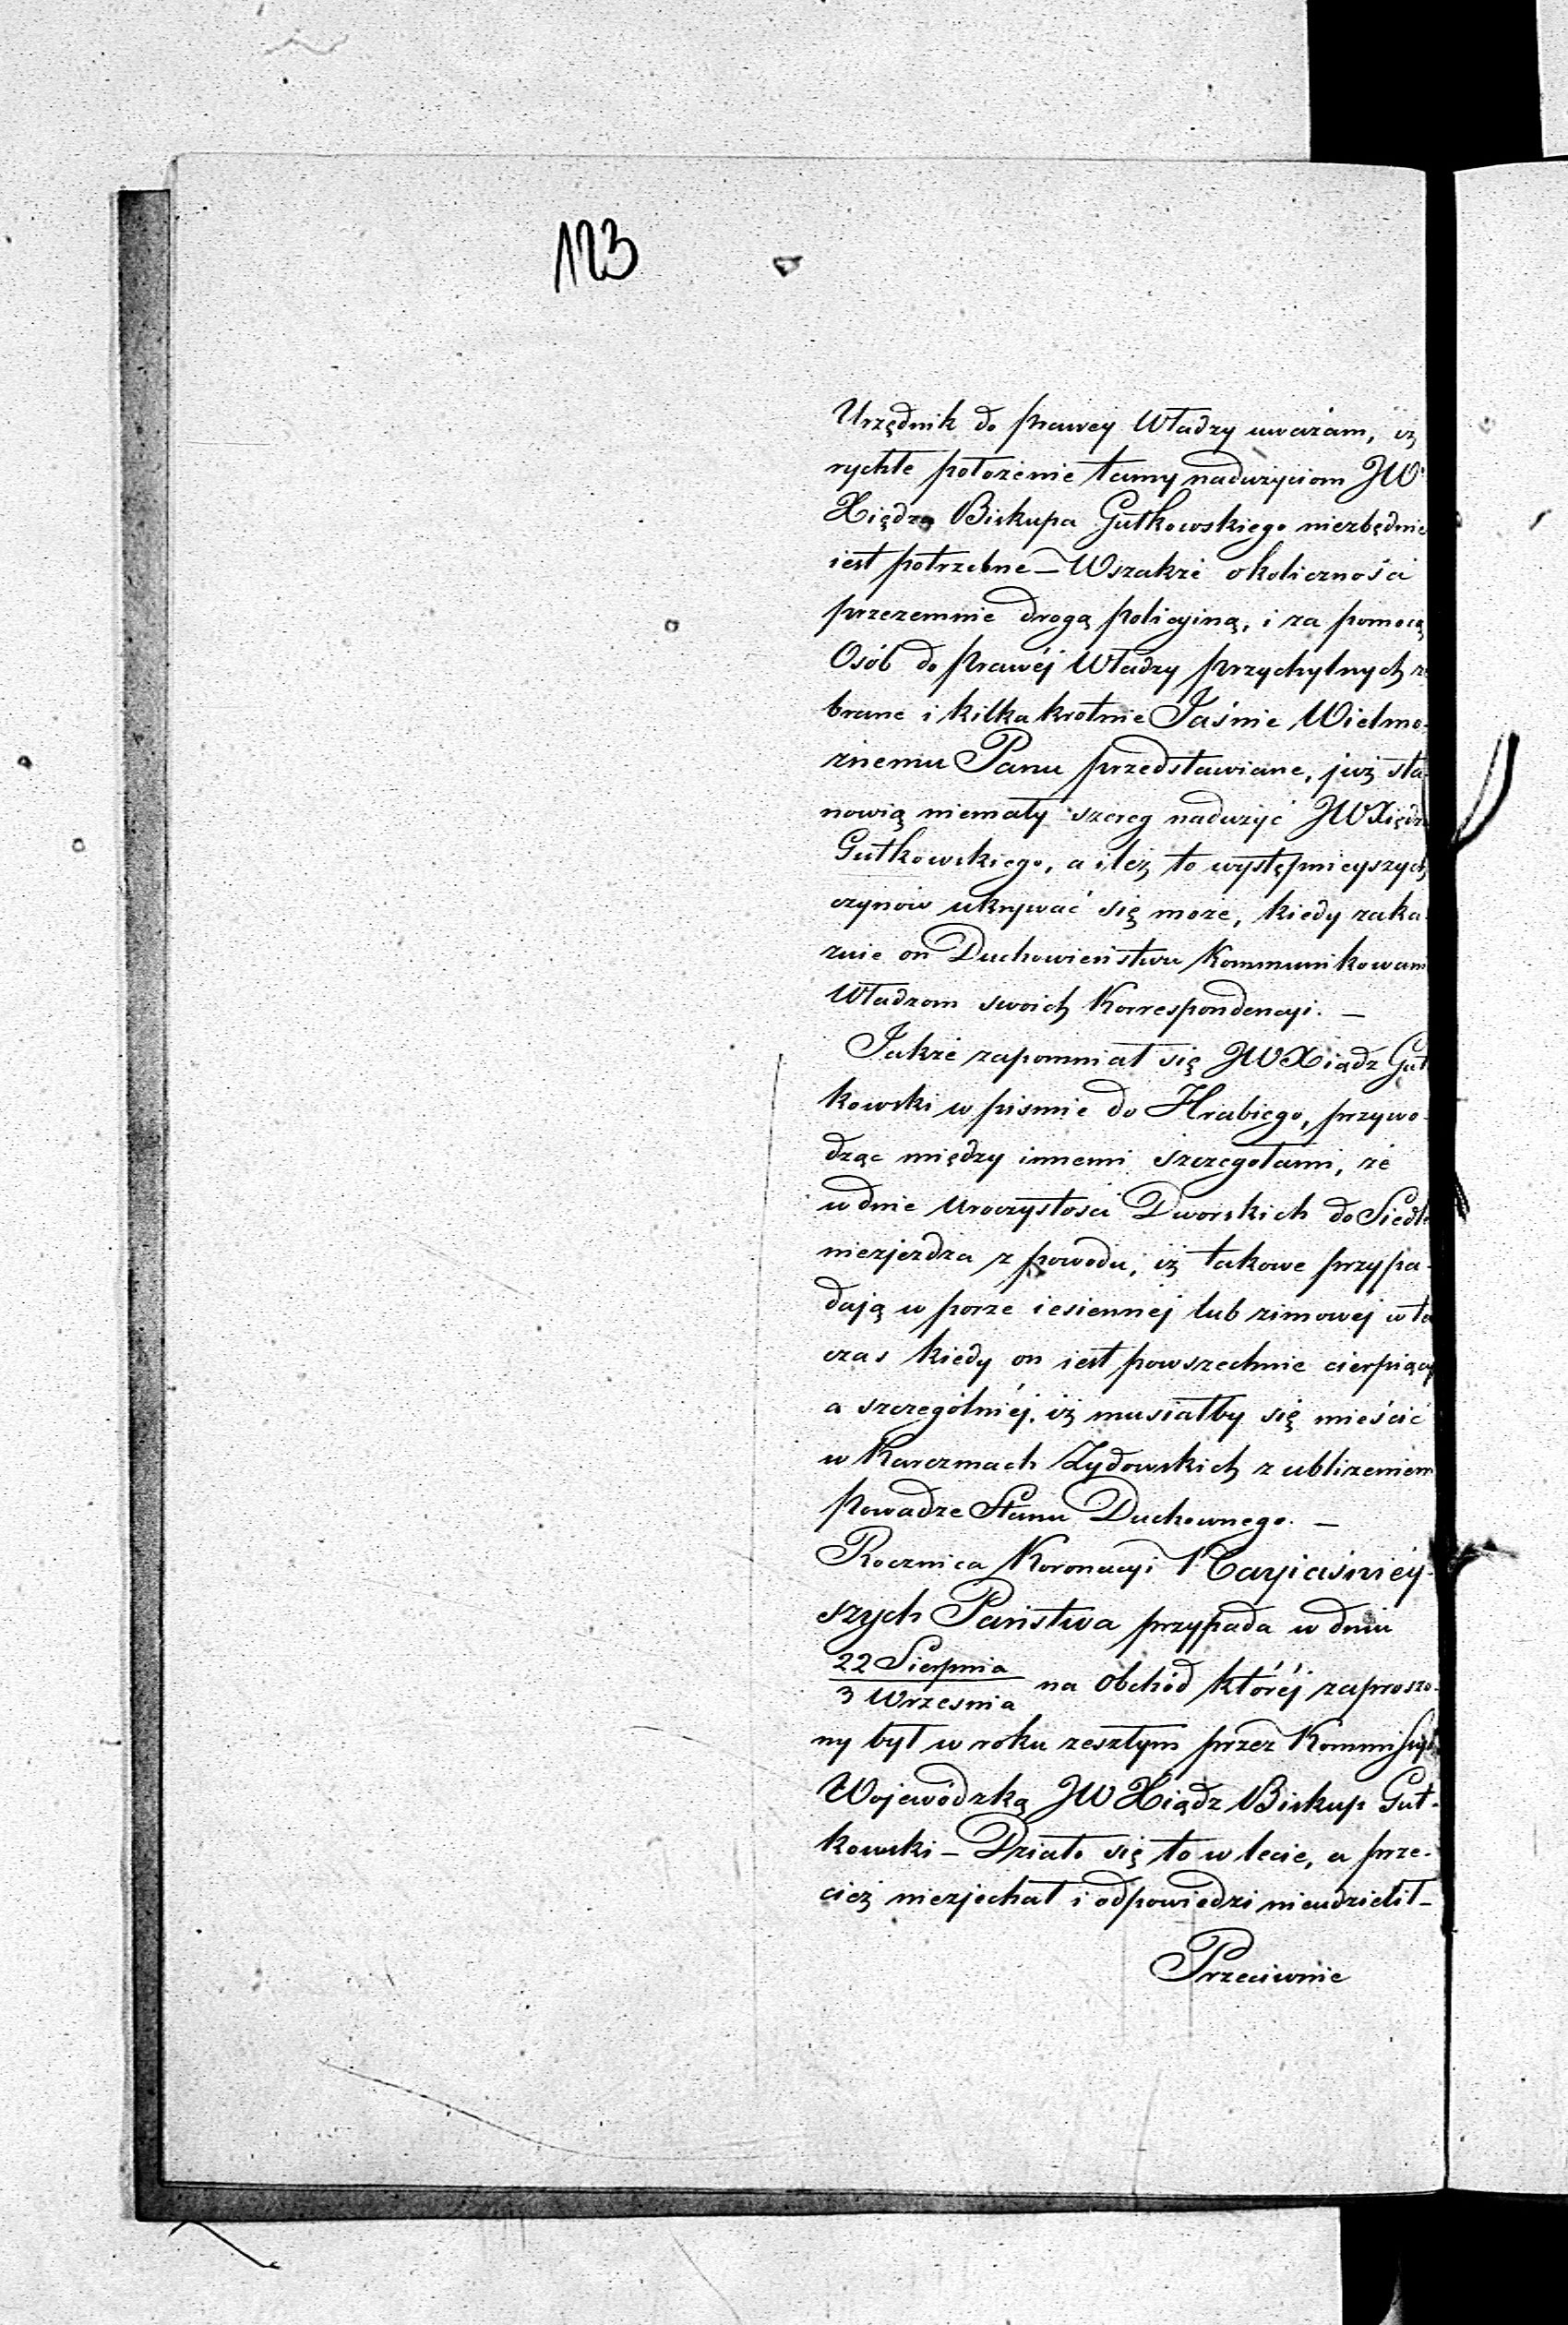 123
Urzędnik do prawey Władzy uważam, iż
rychłe położenie tamy nadużyciom JW
Xiędza Biskupa Gutkowskiego niezbędnie
iest potrzebne — Wszakże okoliczności
przezemnie drogą policyiną, i za pomocą
Osób do prawéj Władzy przychylnych ze
brane i kilkakrotnie Jaśnie Wielmo-
żnemu Panu przedstawiane, już sta-
nowią niemały szereg nadużyć JWXiędza
Gutkowskiego, a ileż to występnieyszych
czynów ukrywać się może, kiedy zaka-
zuie on Duchowieństwu Kommunikowani
Władzom swoich Korrespondencyi. —
Jakże zapomniał się JWXiądz Gut
kowski w piśmie do Hrabiego, przywo-
dząc między innemi szczegołami, że
w dnie Uroczystości Dworskich do Siedle
niezjeżdza z powodu, iż takowe przypa-
dają w porze iesiennej lub zimowej w ta
czas kiedy on iest powszechnie cierpiący
a szczególniéj, iż musiałby się mieścić
w Karczmach Żydowskich z ubliżeniem
Powadze Stanu Duchownego. —
Rocznica Koronacyi Nayiaśniéy-
szych Państwa przypada w dniu
22 Sierpnia
3 Września na Obchód któréj zaproszo-
ny był w roku zeszłym przez Kommissyą
Wojewódzką JW Xiądz Biskup Gut-
kowski — Działo się to w lecie, a prze-
cież niezjechał i odpowiedzi nieudzielił —
Przeciwnie